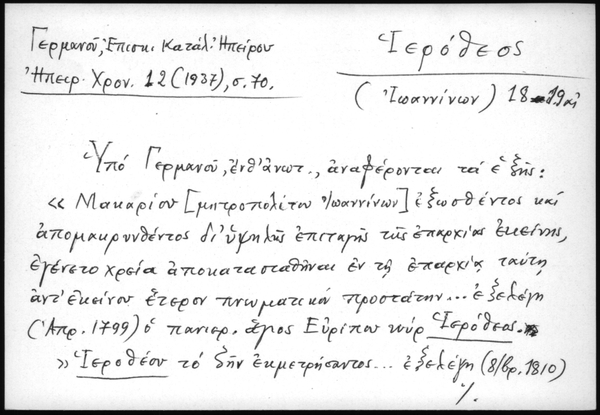 Γερμανοῦ, Ἐπισκ. Κατάλ. Ἠπείρου
Ἠπειρ. Χρον. 12 (1937), σ. 70.
Ἱερόθεος
(Ἰωαννίνων) 18-19 αἰ
Ὑπό Γερμανοῦ, ἐνθ' ἀνωτ., ἀναφέρονται τά ἑξῆς:
« Μακαρίου [μητροπολίτου Ἰωαννίνων] ἐξωσθέντος καί
ἀπομακρυνθέντος δι' ὑψηλῆς ἐπιταγῆς τῆς ἐπαρχίας ἐκείνης,
ἐγένετο χρεία ἀποκατασταθῆναι ἐν τῇ ἐπαρχίᾳ ταύτῃ
ἀντ' ἐκείνου ἕτερον πνευματικόν προστάτην... ἐξελέγη
(Ἀπρ. 1799) ὁ πανιερ. ἅγιος Εὐρίπου κύρ Ἱερόθεος.
» Ἱεροθέου τό ζῆν ἐκμετρήσαντος... ἐξελέγη (8/βρ. 1810)
./.